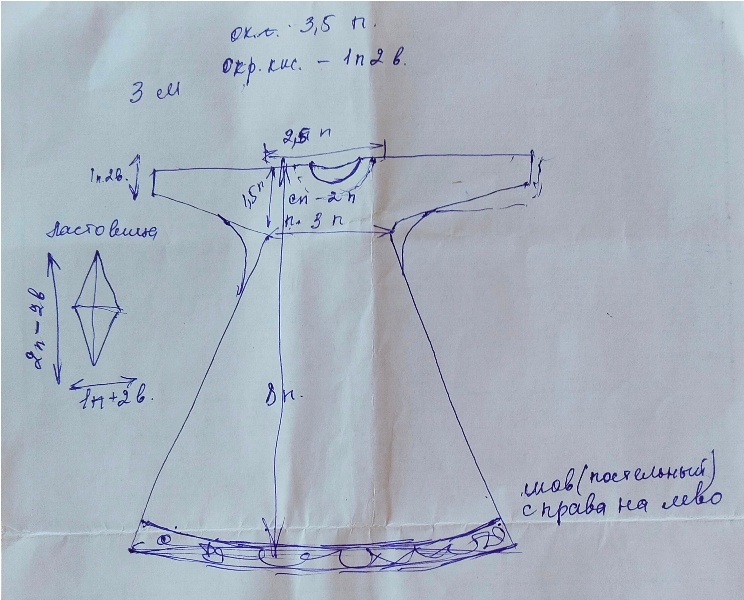 окл. 3,5 п.
окр. кис. - 1п 2 в.
3 м
2,5 п
1п 2в.
1,5п
сп - 2 п
п. 3 п
Ластовица
2п - 2в
1п+2в.
8 п.
шов (постельный)
справа на лево